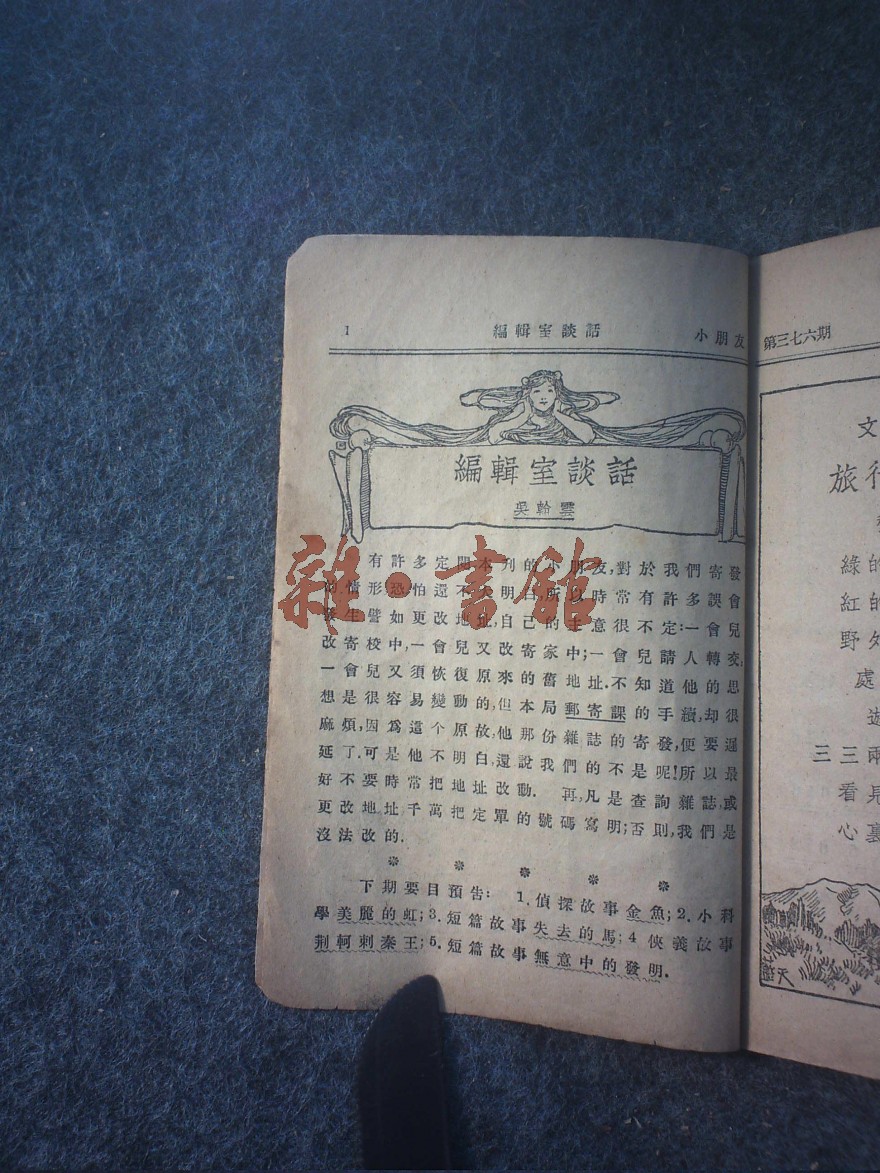 1 編輯室談話 小朋友
編輯室談話
吳翰雲
有許多定閱本刊的小朋友,對於我們寄發
的情形恐怕還不大明白,所以時常有許多誤會
發生.譬如更改地址,自己的主意很不定:一會兒
改寄校中,一會兒又改寄家中;一會兒請人轉交,
一會兒又須恢復原來的舊地址.不知道他的思
想是很容易變動的,但本局郵寄課的手續,却很
麻煩,因爲這个原故,他那份雜誌的寄發,便要遲
延了.可是他不明白,還說我們的不是呢!所以最
好不要時常把地址改動. 再,凡是查詢雜誌,或
更改地址千萬把定單的號碼寫明;否則,我們是
沒法改的.
* * * * *
下期要目預告: 1.偵探故事金魚;2.小科
學美麗的虹;3.短篇故事失去的馬;4 俠義故事
荆軻刺秦王;5.短篇故事無意中的發明.
雜·書館
第三七六期
文
旅行
綠的
紅的
野外
處
遊
三三兩
看見
心裏